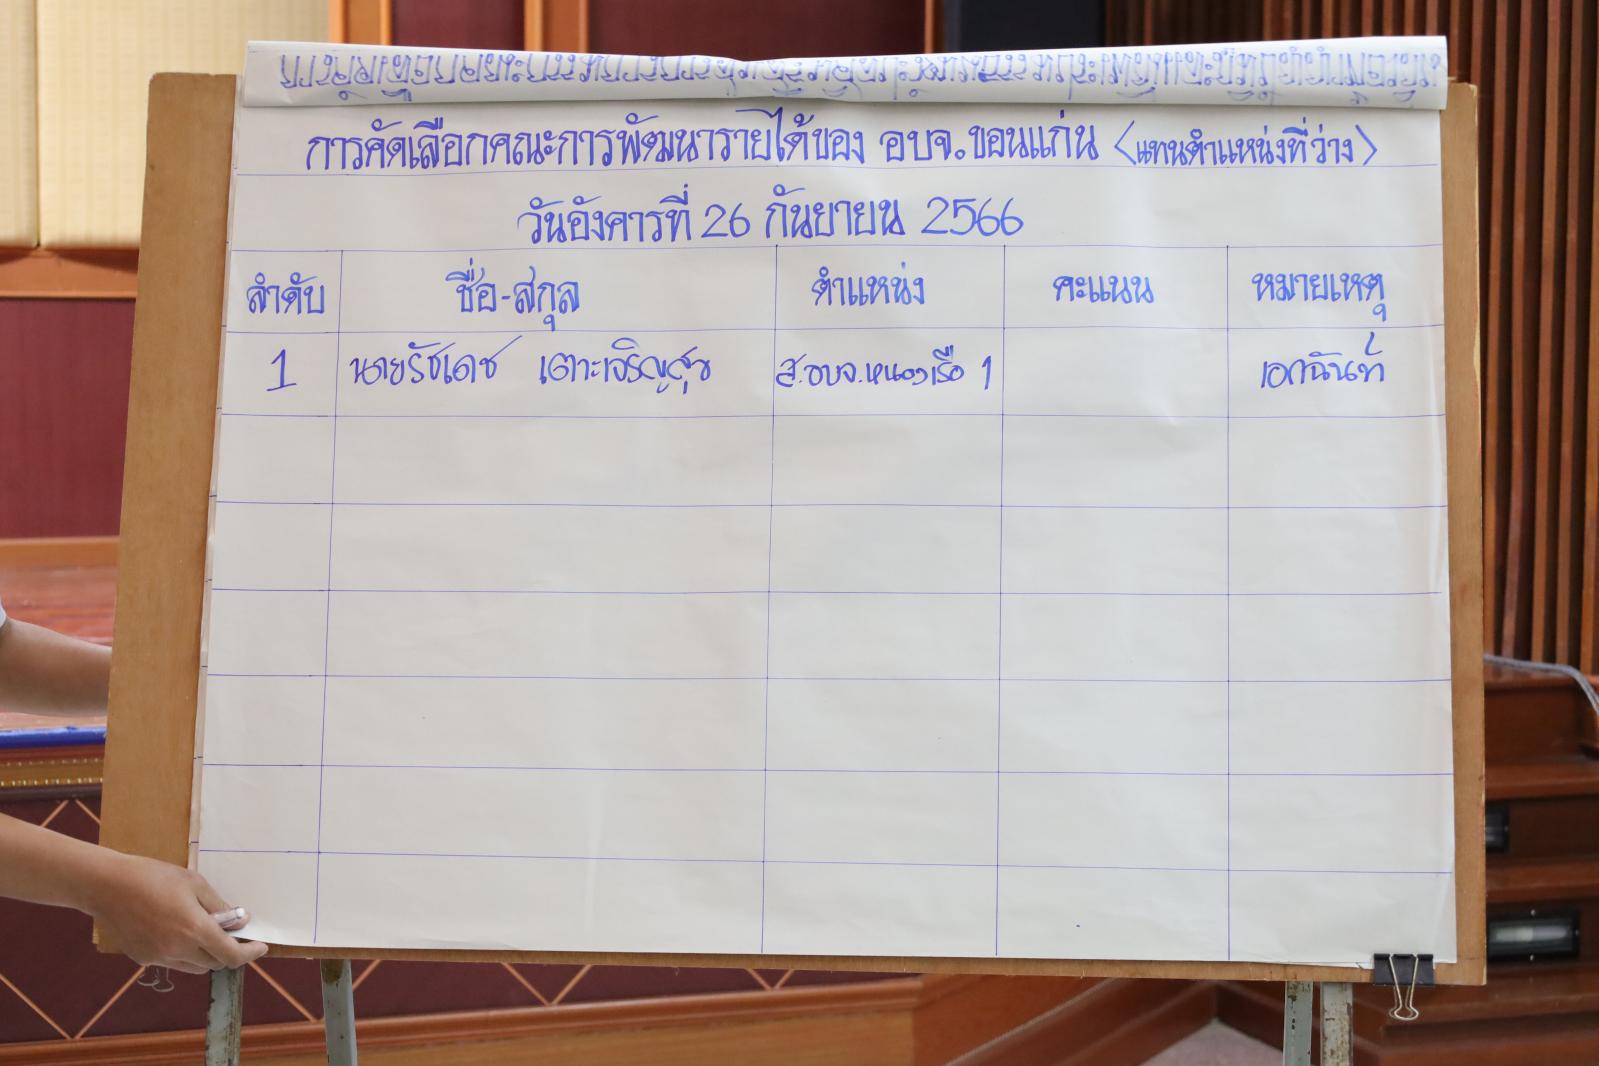 การคัดเลือกคณะการพัฒนารายได้ของ อบจ.ขอนแก่น <แทนตำแหน่งที่ว่าง>
วันอังคารที่ 26 กันยายน 2566
ลำดับ ชื่อ-สกุล ตำแหน่ง คะแนน หมายเหตุ
1 นายรัชเดช เตาะเจริญสุข ส.อบจ.หนองเรือ 1 เอกฉันท์